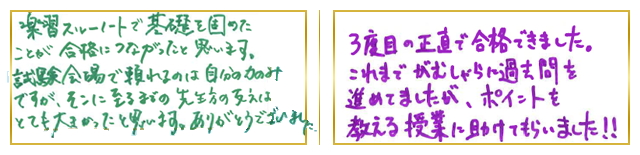 楽習スルーノートで基礎を固めた
ことが合格につながったと思います。
試験会場で頼れるのは自分の力のみ
ですが、そこに至るまでの先生方の支えは
とても大きかったと思います。ありがとうございました。
3度目の正直で合格できました。
これまでがむしゃらに過去問を
進めてましたが、ポイントを
教える授業に助けてもらいました!!